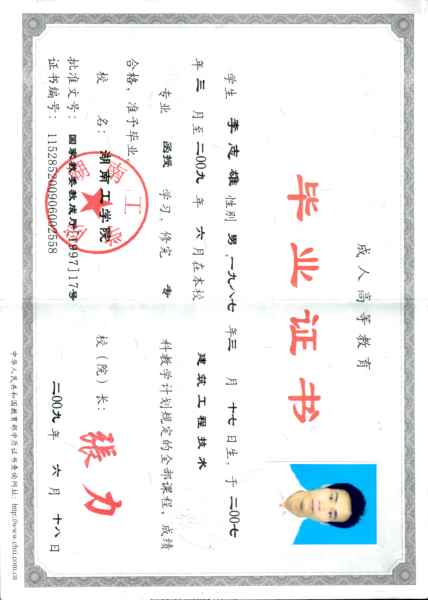 成人高等教育
毕业证书
学生 李志雄 性别 男，一九八七年三月十七日生，于二〇〇七
年三月至二〇〇九年六月在本校 建筑工程技术
专业 函授 学习，修完 专 科教学计划规定的全部课程，成绩
合格，准予毕业。
校名：湖南工学院 校（院）长：张力
批准文号：国家教委教成厅[1997]17号
证书编号：115285200906002558 二〇〇九年六月十八日
中华人民共和国教育部学历证书查询网址：http://www.chsi.com.cn